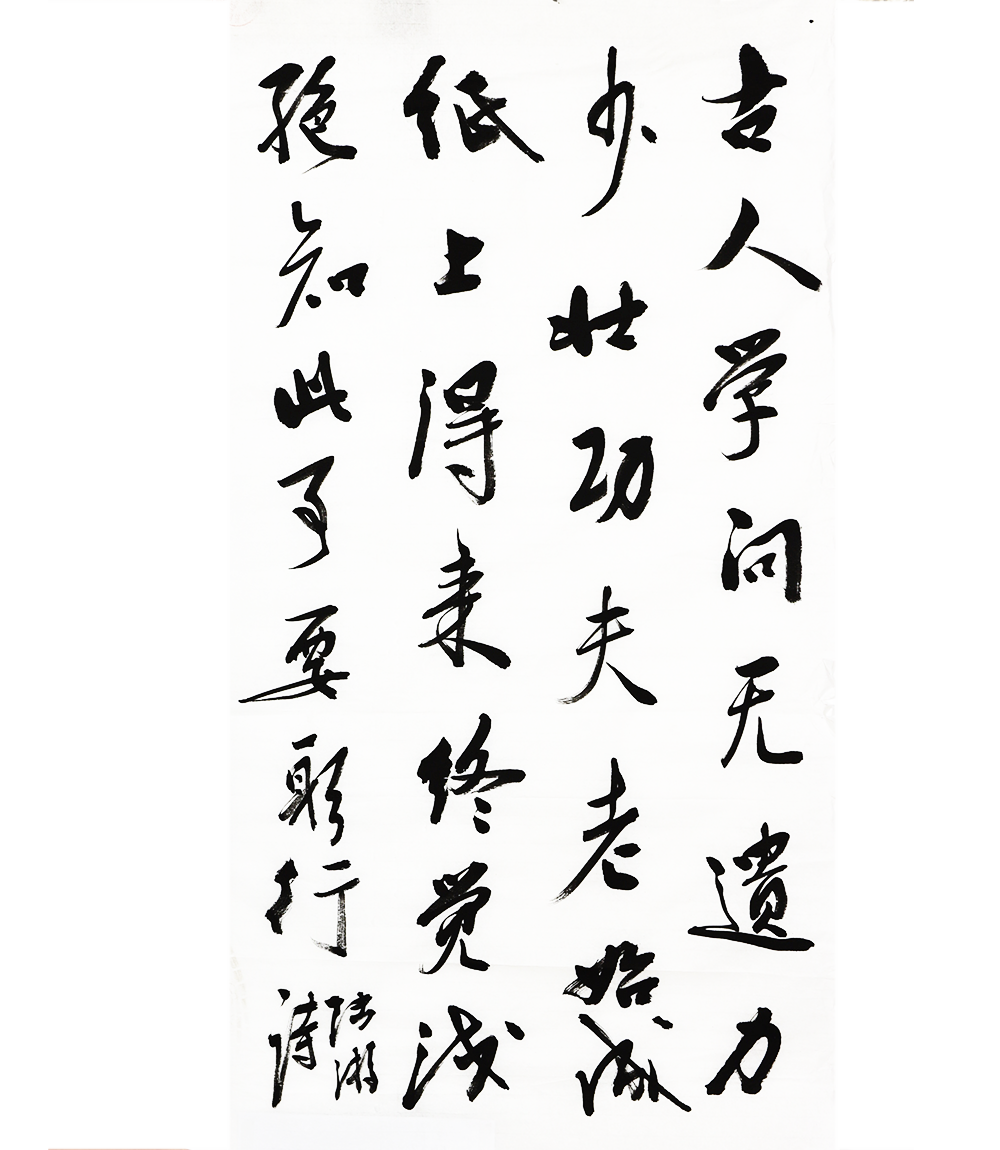 古人学问无遗力
少壮功夫老始成
纸上得来终觉浅
绝知此事要躬行
陆游
诗